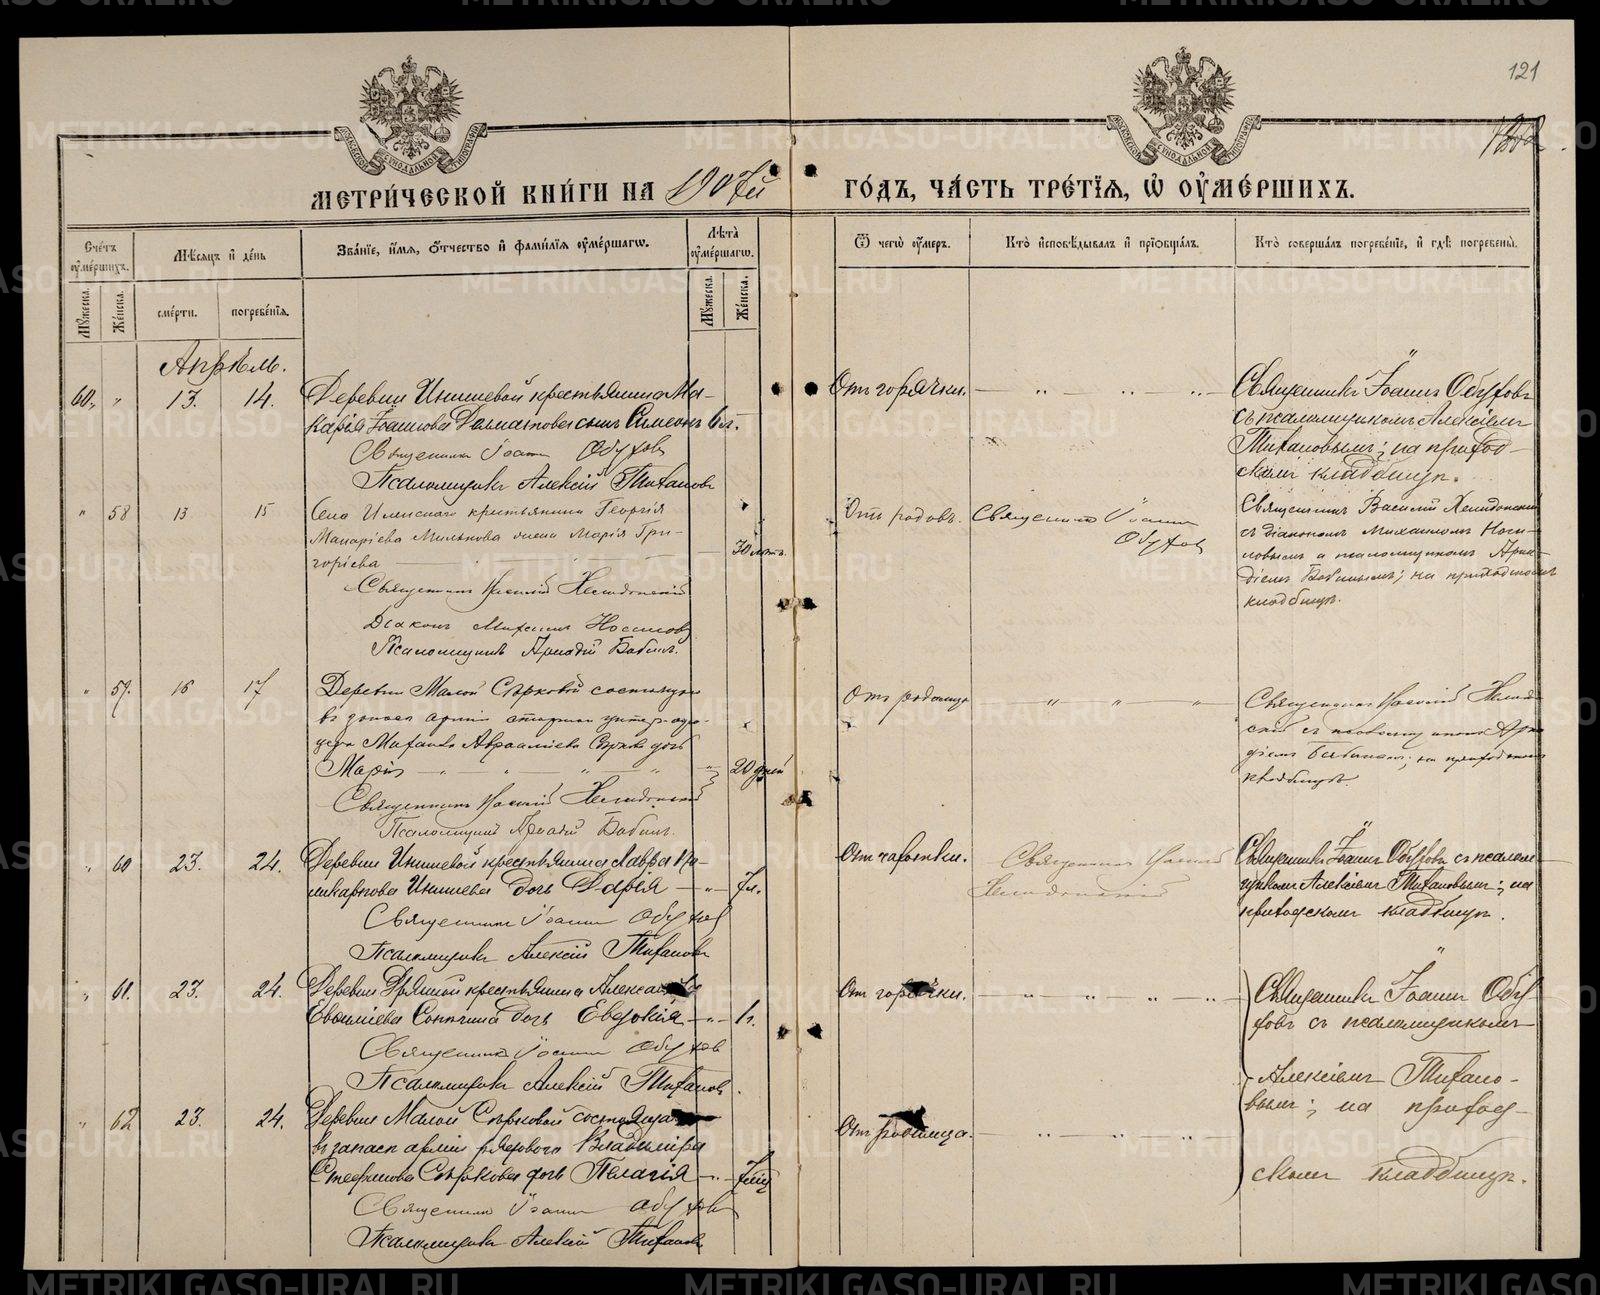 121
МЕТРИ́ЧЕСКОЙ КНИ́ГИ НА 1907й
ГО́ДЪ, ЧА́СТЬ ТРЕ́ТЇѦ, Ѡ҆ ОУ҆МЕ́РШИХЪ.
Сче́тъ оу҆ме́ршихъ.
Мѣ́сѧцъ и҆ де́нь
Зва́нїе, и҆́мѧ, ѻ҆́тчество и҆ фами́лїѧ оу҆ме́ршагѡ.
Лѣ́та оу҆ме́ршагѡ.
Ѿ чегѡ̀ оу҆́меръ.
Кто̀ и҆сповѣ́дывалъ и҆ прїѡбща́лъ.
Кто̀ соверша́лъ погребе́нїе, и҆ гдѣ̀ погребены̀.
Мꙋ́жеска.
Же́нска.
сме́рти.
погребе́нїѧ.
Мꙋ́жеска.
Же́нска.
Апрѣль.
60. " 13. 14. Деревни Инишевой крестьянина Ма-
карія Іоаннова Далматова сынъ Симеонъ
Священникъ Іоаннъ Обуховъ
Псаломщикъ Алексій Тихановъ
Отъ горячки.
Священникъ Іоаннъ Обуховъ
съ псаломщикомъ Алексіемъ
Тихановымъ; на приход-
скомъ кладбищѣ.
" 58 13 15 Села крестьянина Георгія
Макаріева Милькова жена Марія Гри-
горіева 30 лѣтъ.
Священникъ Василій
Діаконъ Михаилъ Носиловъ
Псаломщикъ Аркадій Бабинъ.
Отъ родовъ.
Священникъ Іоаннъ
Обуховъ
Священникъ Василій
съ діакономъ Михаиломъ Носи-
ловымъ и псаломщикомъ Арка-
діемъ Бабинымъ; на приходскомъ
кладбищѣ.
" 59. 16 17 Деревни Малой Серковой состоящаго
въ запасѣ арміи старшаго унтеръ-офи-
цера Михаила Авраамова Серкова дочь
Марія 20 дней
Священникъ Василій
Псаломщикъ Аркадій Бабинъ.
Отъ родимца
Священникъ Василій
съ псаломщикомъ Арка-
діемъ Бабинымъ; на приходскомъ
кладбищѣ.
" 60 23. 24. Деревни Инишевой крестьянина Лавра По-
ликарпова Инишева дочь Дарія 7 л.
Священникъ Іоаннъ Обуховъ
Псаломщикъ Алексій Тихановъ
Отъ чахотки.
Священникъ Василій
Священникъ Іоаннъ Обуховъ съ псалом-
щикомъ Алексіемъ Тихановымъ; на
приходскомъ кладбищѣ.
" 61. 23. 24. Деревни крестьянина
дочь Евдокія 1 г.
Священникъ Іоаннъ Обуховъ
Псаломщикъ Алексій Тихановъ.
Отъ горячки.
Священникъ Іоаннъ Обу-
ховъ съ псаломщикомъ
Алексіемъ Тихано-
вымъ; на приход-
скомъ кладбищѣ.
" 62 23. 24. Деревни Малой Серковой состоящаго
въ запасѣ арміи рядового Владиміра
Стефанова Серкова дочь Пелагія
Священникъ Іоаннъ Обуховъ
Псаломщикъ Алексій Тихановъ
Отъ родимца.
METRIKI.GASO-URAL.RU